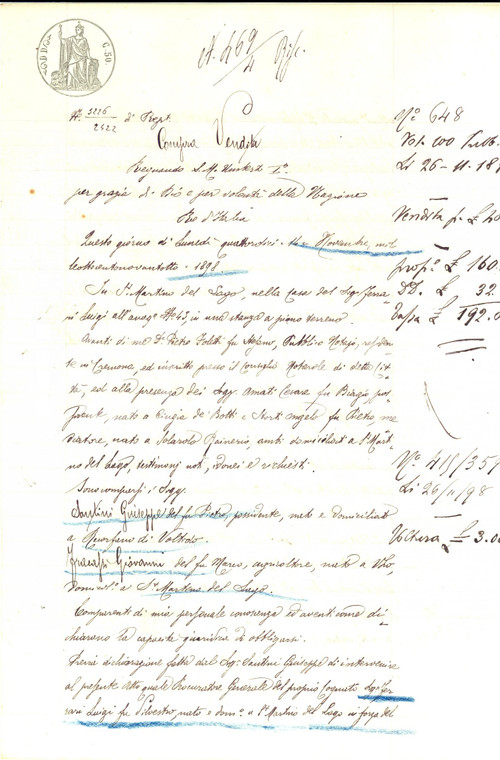 C. 50.
N. 469/4 Rep.
N.° 3226/2422 di Rep.
Compra Vendita
Regnando S. M. Umberto I.°
per grazia di Dio e per volontà della Nazione
Re d'Italia
Questo giorno di Lunedì quattordici 14 Novembre mil
leottocentonovantotto - 1898.
In S. Martino del Lago, nella casa del Sig. Ferra
ri Luigi all'anag. N. 43, in una stanza a piano terreno.
Avanti di me D. Pietro fu Stefano, Pubblico Notajo, residen
te in Cremona, ed inscritto presso il Consiglio Notarile di detta Cit
tà, ed alla presenza dei Sigg. Amati Cesare fu Biagio pos
sidente, nato a Cingia de' Botti e Storti Angelo fu Pietro, me
diatore, nato a Solarolo Rainerio, ambi domiciliati a S. Marti
no del Lago, testimonj noti, idonei e richiesti.
Sono comparsi i Sigg.
Santini Giuseppe del fu Pietro, possidente, nato e domiciliato
a di Voltido
Giovanni del fu Marco, agricoltore, nato a Vho,
domic.° a S. Martino del Lago.
Comparenti di mia personale conoscenza ed aventi come di
chiarano la capacità giuridica di obbligarsi.
Previa dichiarazione fatta dal Sig. Santini Giuseppe di intervenire
al presente Atto quale Procuratore Generale del proprio cognato Sig. Fer
rari Luigi fu Silvestro, nato e dom.° a S. Martino del Lago in forza del
N.° 648
Vol. 100
Li 26-11-18
Vendita f. £ 40
Prop.° £ 160.
DD. £ 32.
Tassa £ 192.0
N.° 418/359
Li 26/11/98
Voltura £ 3.00